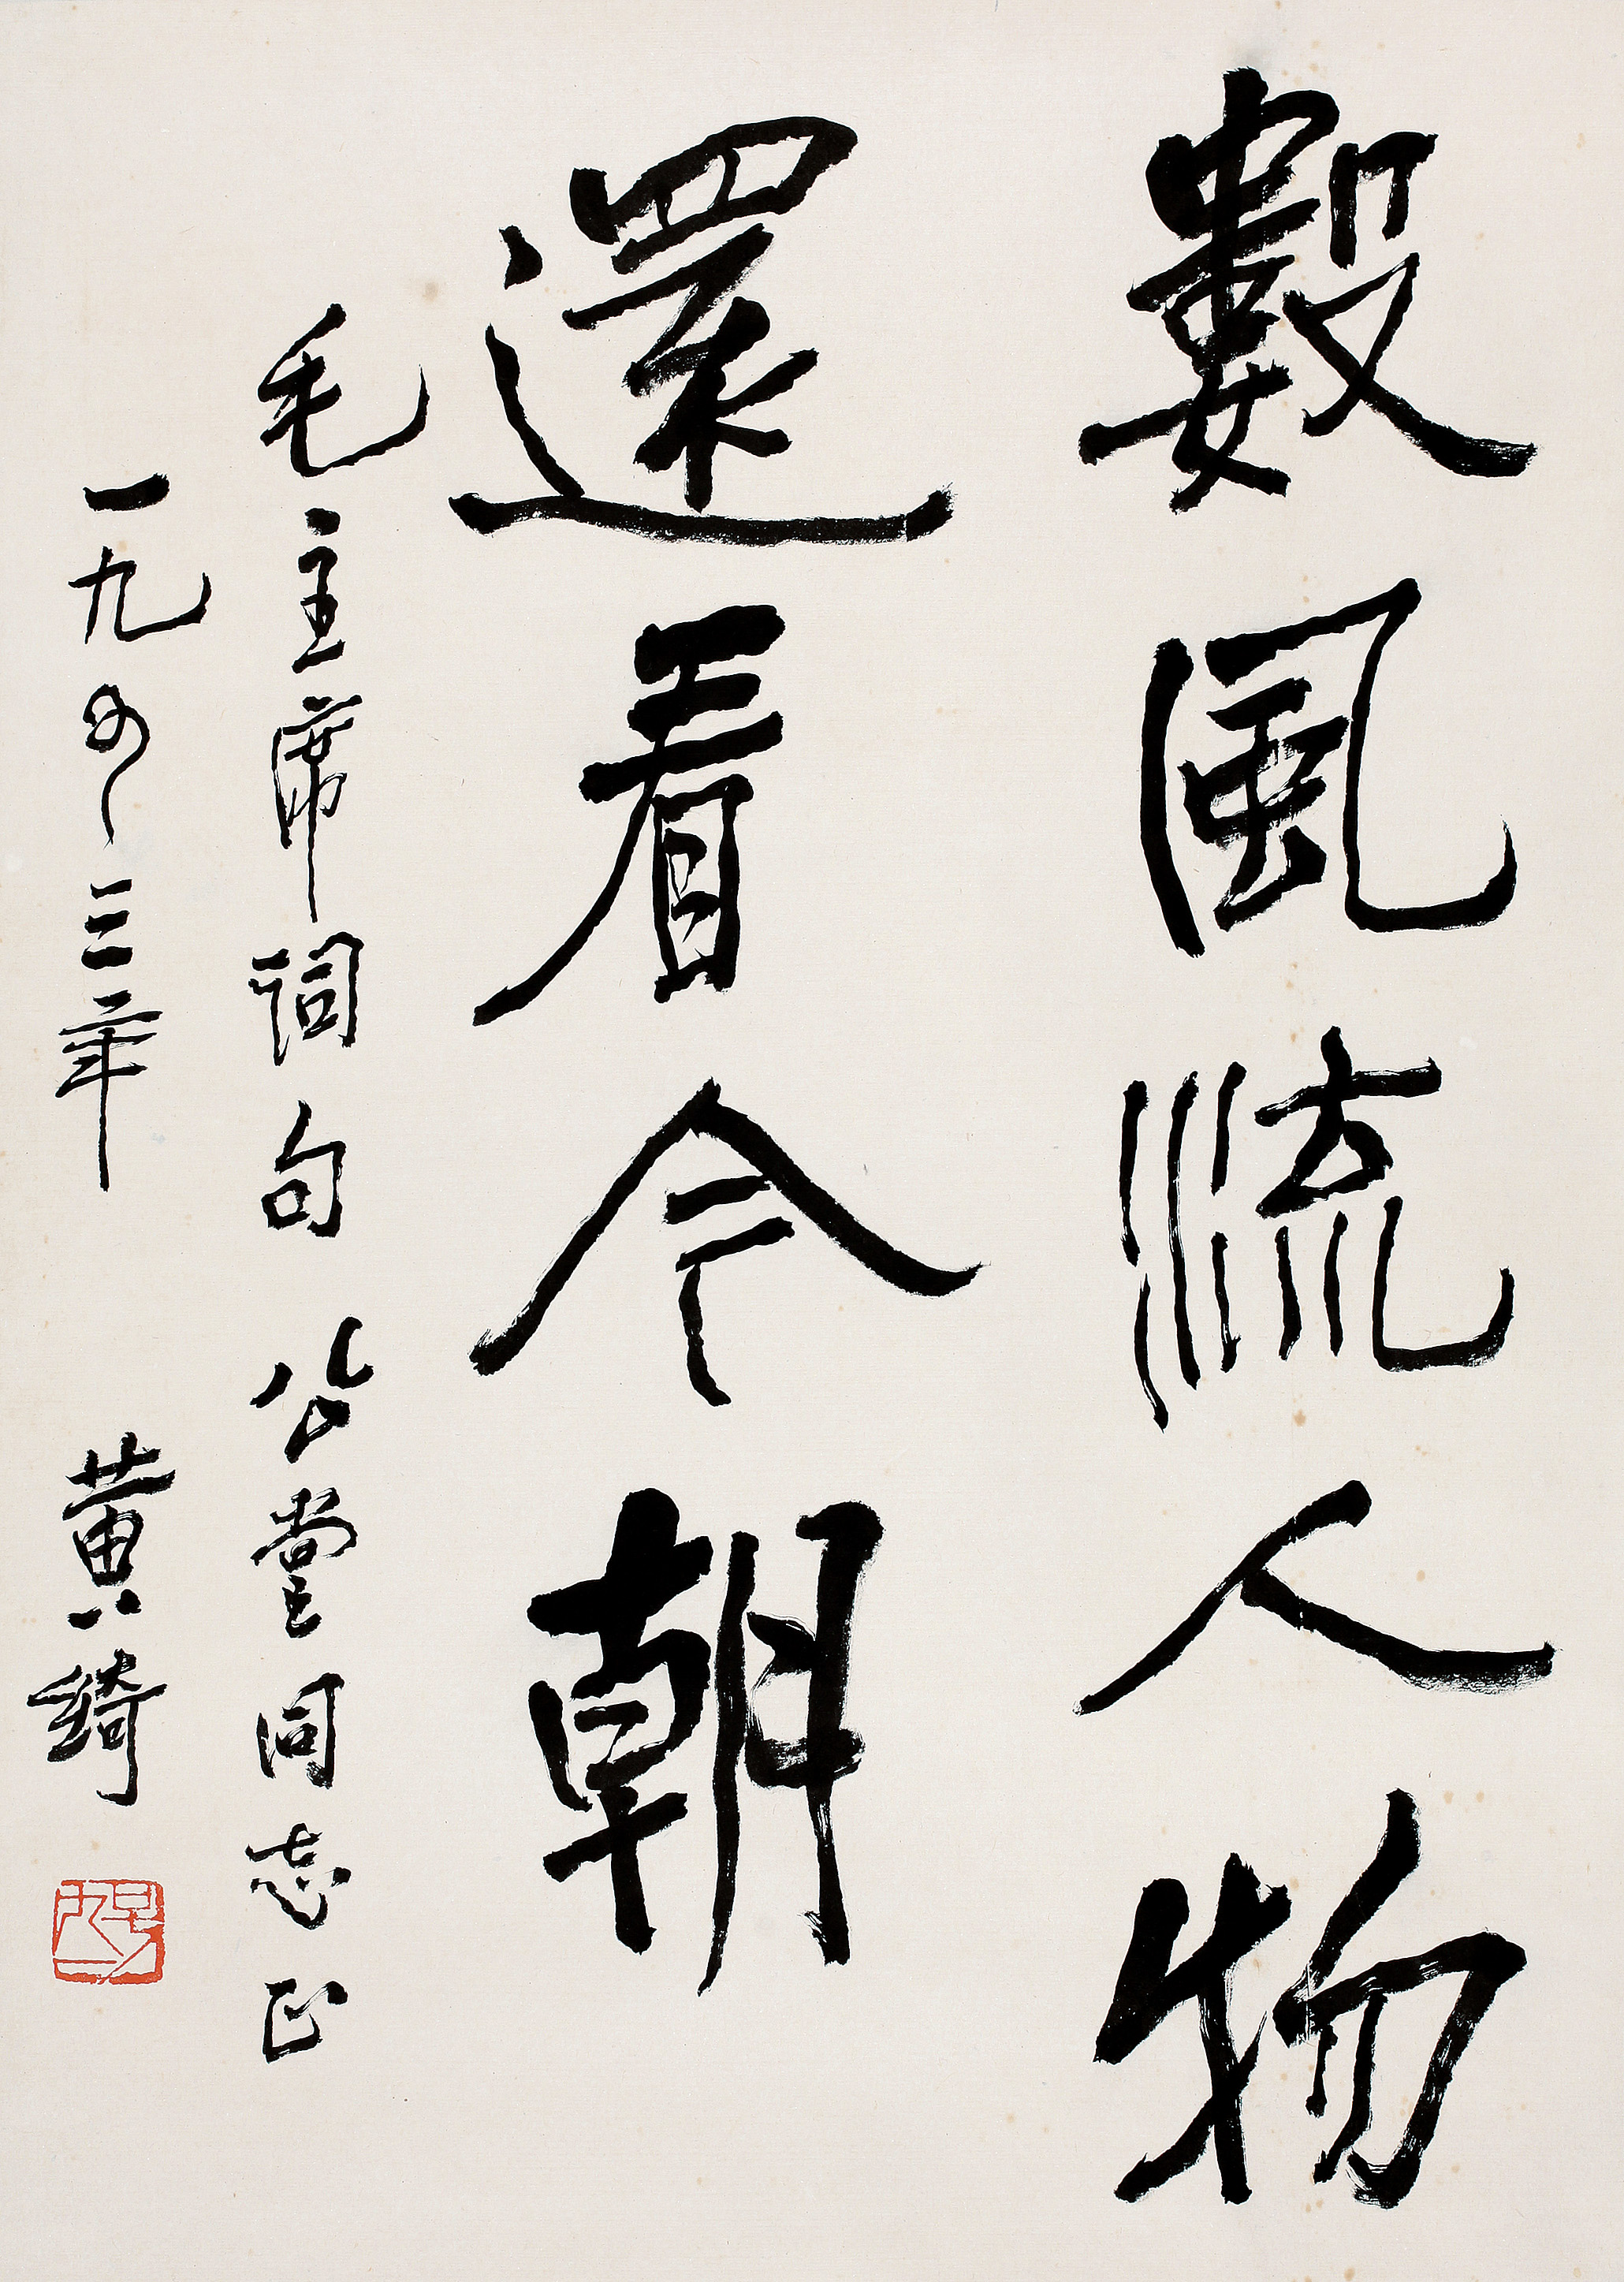 數風流人物
還看今朝
毛主席詞句 公堂同志正
一九三年 黄綺